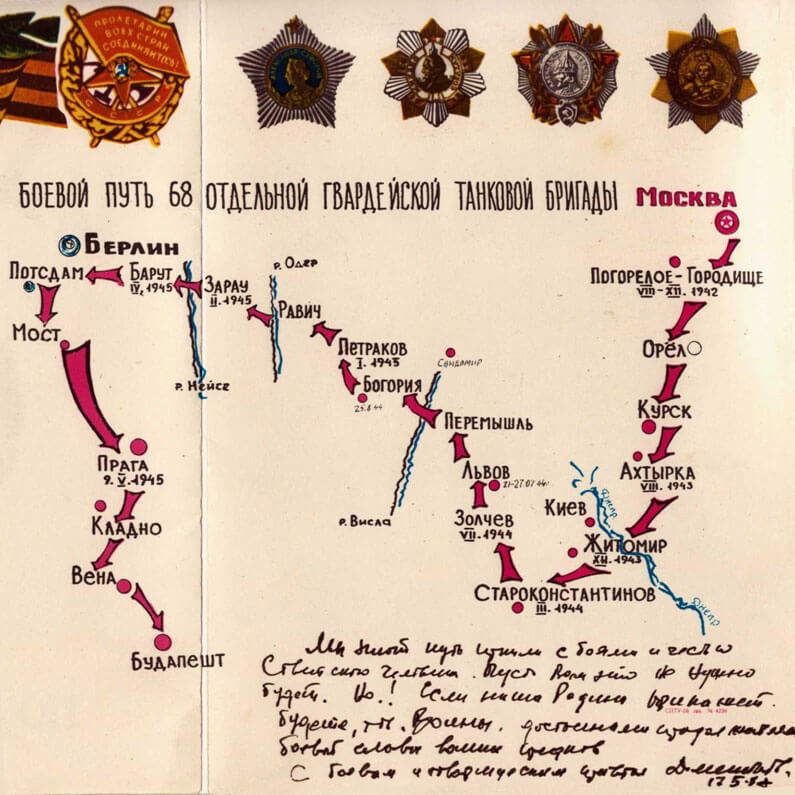 ПРОЛЕТАРИИ
ВСЕХ СТРАН
СОЕДИНЯЙТЕСЬ!
СССР
БОЕВОЙ ПУТЬ 68 ОТДЕЛЬНОЙ ГВАРДЕЙСКОЙ ТАНКОВОЙ БРИГАДЫ
МОСКВА
ПОГОРЕЛОЕ-ГОРОДИЩЕ
VIII-XII. 1942
ОРЁЛ
КУРСК
АХТЫРКА
VIII. 1943
Днепр
КИЕВ
ЖИТОМИР
XII. 1943
Днепр
СТАРОКОНСТАНТИНОВ
III. 1944
ЗОЛЧЕВ
VII. 1944
ЛЬВОВ
21-27.07.44г.
ПЕРЕМЫШЛЬ
р. Висла
Сандомир
БОГОРИЯ
25.8.44
ПЕТРАКОВ
I. 1945
РАВИЧ
р. Одер
ЗАРАУ
II. 1945
р. Нейсе
БАРУТ
IV. 1945
БЕРЛИН
ПОТСДАМ
МОСТ
ПРАГА
9. V. 1945
КЛАДНО
ВЕНА
БУДАПЕШТ
Мы этот путь прошли с боями и честью
Советского человека. Пусть вам это не нужно
будет. Но! Если наша Родина прикажет.
будете, т.т. Воины, достойными
боевой славы ваших
С боевым и приветом